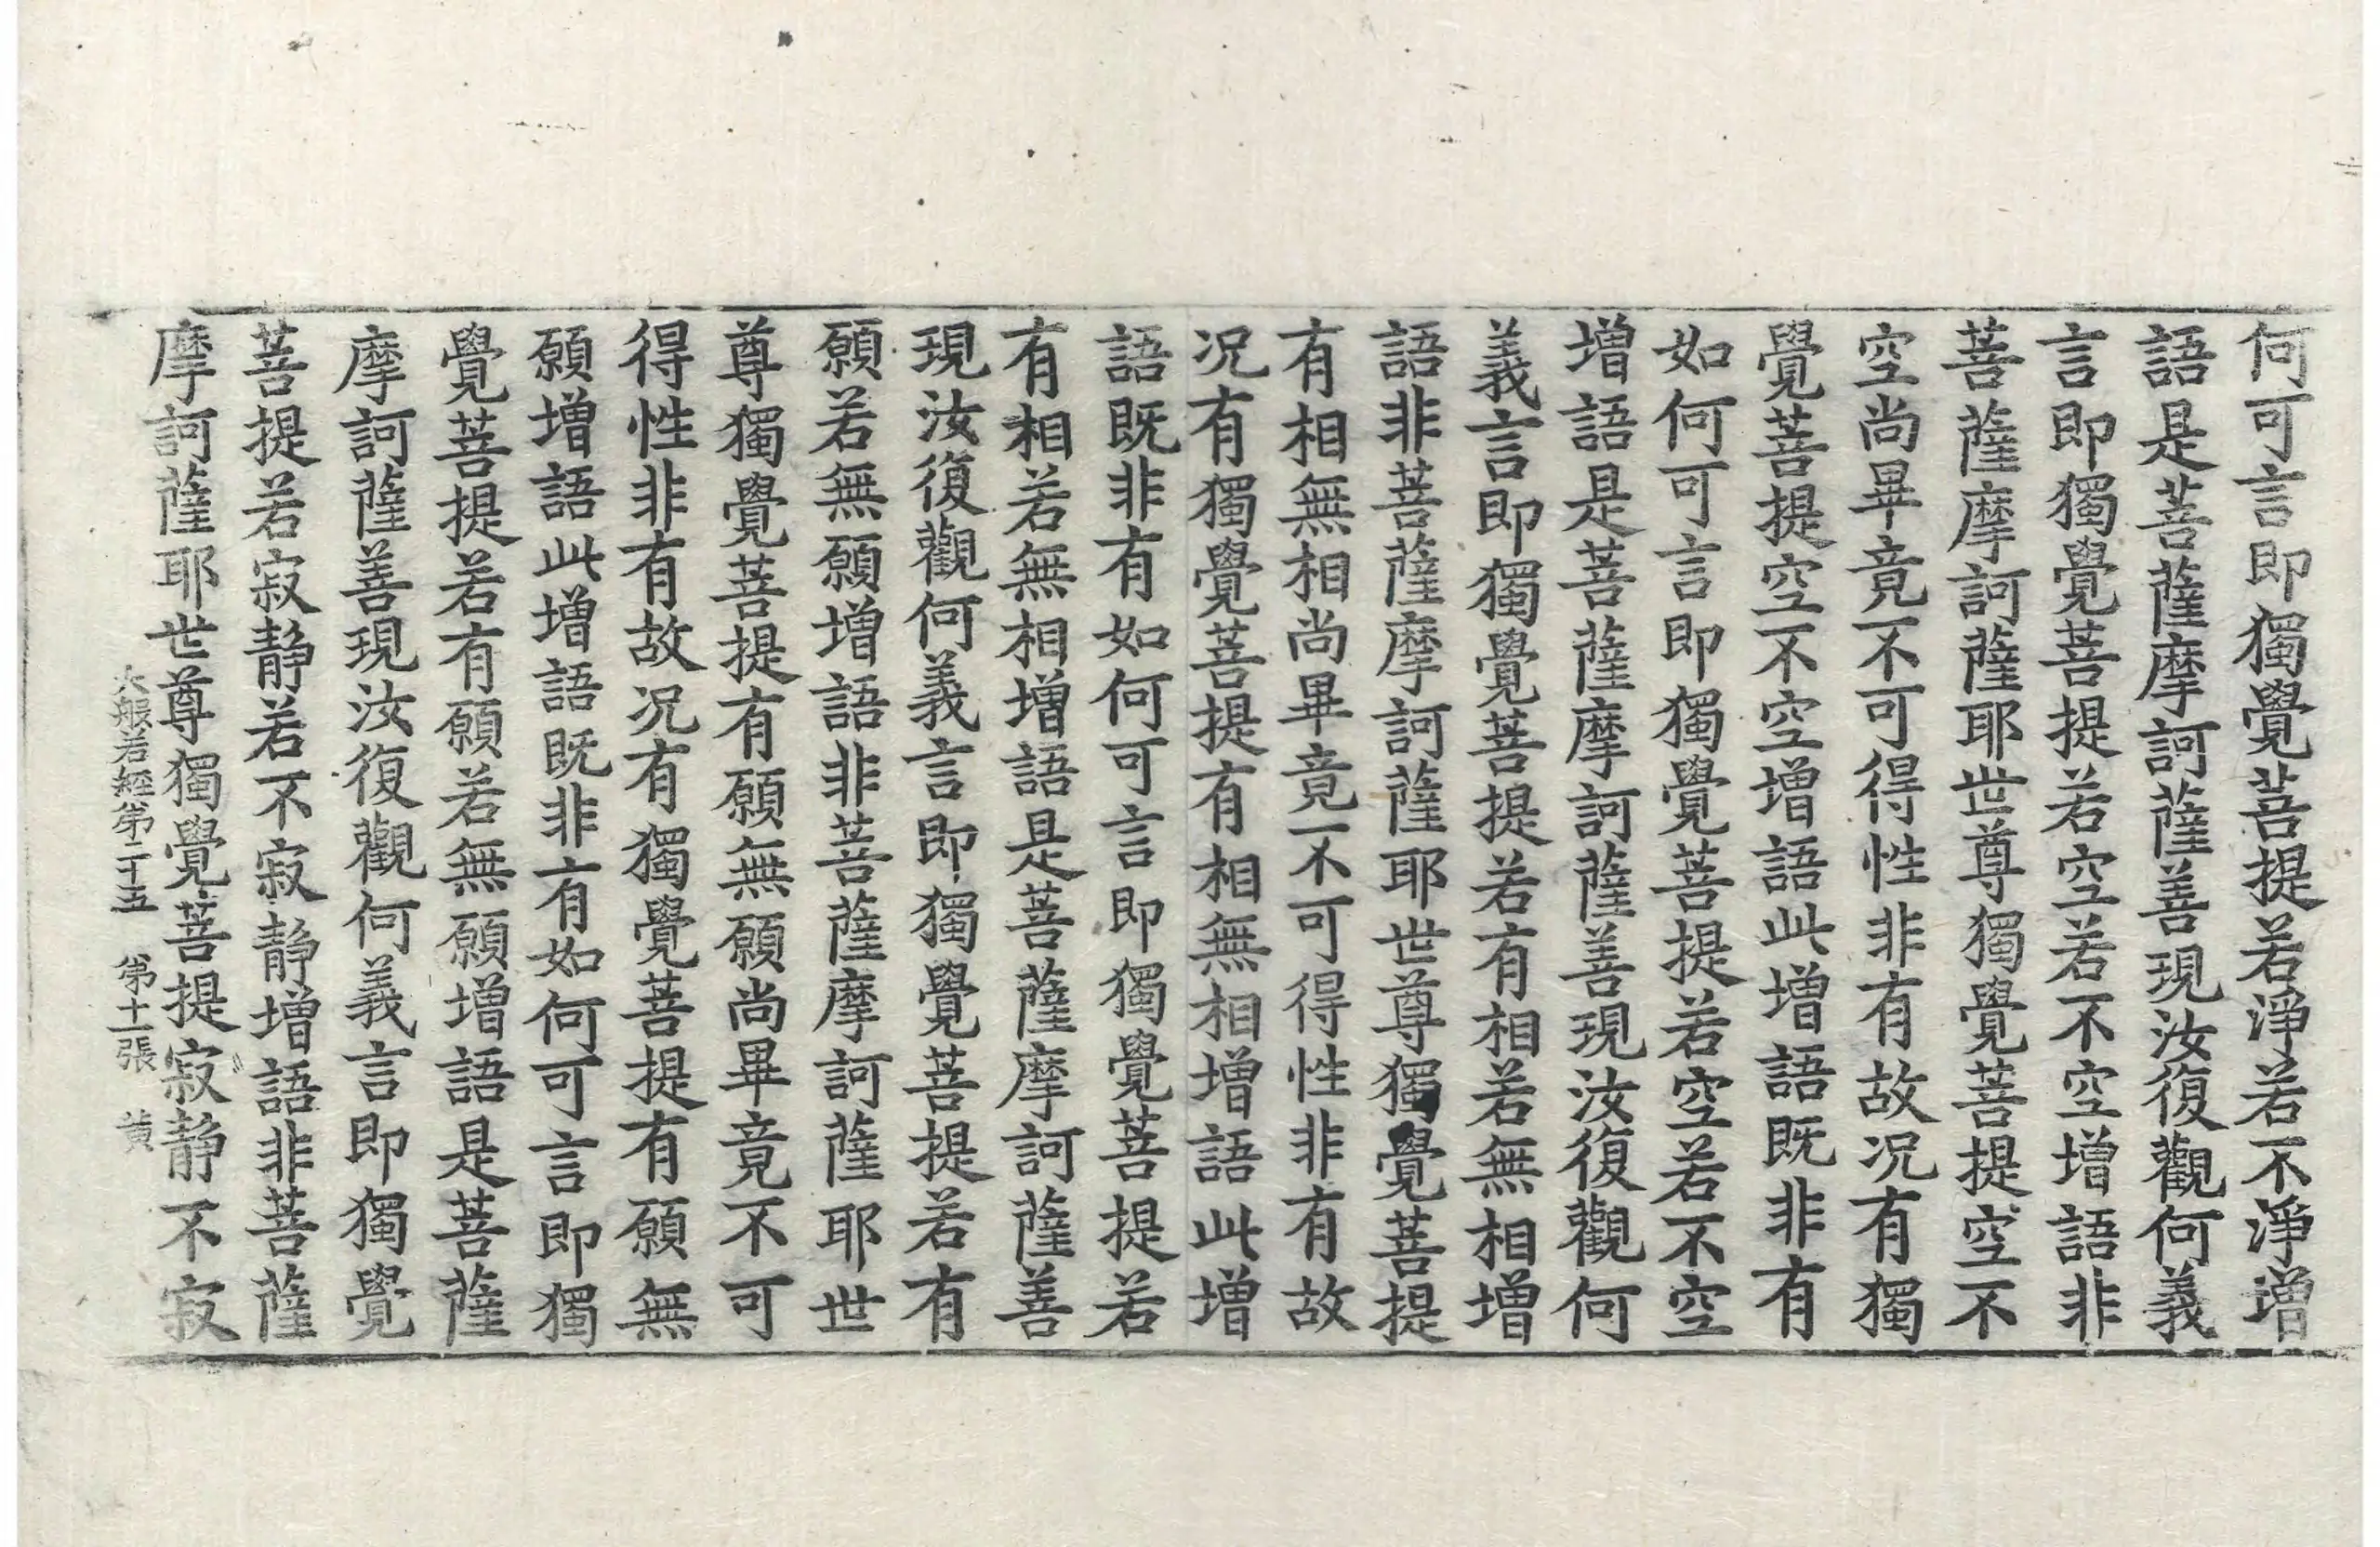 何可言即獨覺菩提若淨若不淨增
語是菩薩摩訶薩善現汝復觀何義
言即獨覺菩提若空若不空增語非
菩薩摩訶薩耶世尊獨覺菩提空不
空尚畢竟不可得性非有故况有獨
覺菩提空不空增語此增語既非有
如何可言即獨覺菩提若空若不空
增語是菩薩摩訶薩善現汝復觀何
義言即獨覺菩提若有相若無相增
語非菩薩摩訶薩耶世尊獨覺菩提
有相無相尚畢竟不可得性非有故
况有獨覺菩提有相無相增語此增
語既非有如何可言即獨覺菩提若
有相若無相增語是菩薩摩訶薩善
現汝復觀何義言即獨覺菩提若有
願若無願增語非菩薩摩訶薩耶世
尊獨覺菩提有願無願尚畢竟不可
得性非有故况有獨覺菩提有願無
願增語此增語既非有如何可言即獨
覺菩提若有願若無願增語是菩薩
摩訶薩善現汝復觀何義言即獨覺
菩提若寂静若不寂静增語非菩薩
摩訶薩耶世尊獨覺菩提寂静不寂
大般若經第二十五 第十一張 黄